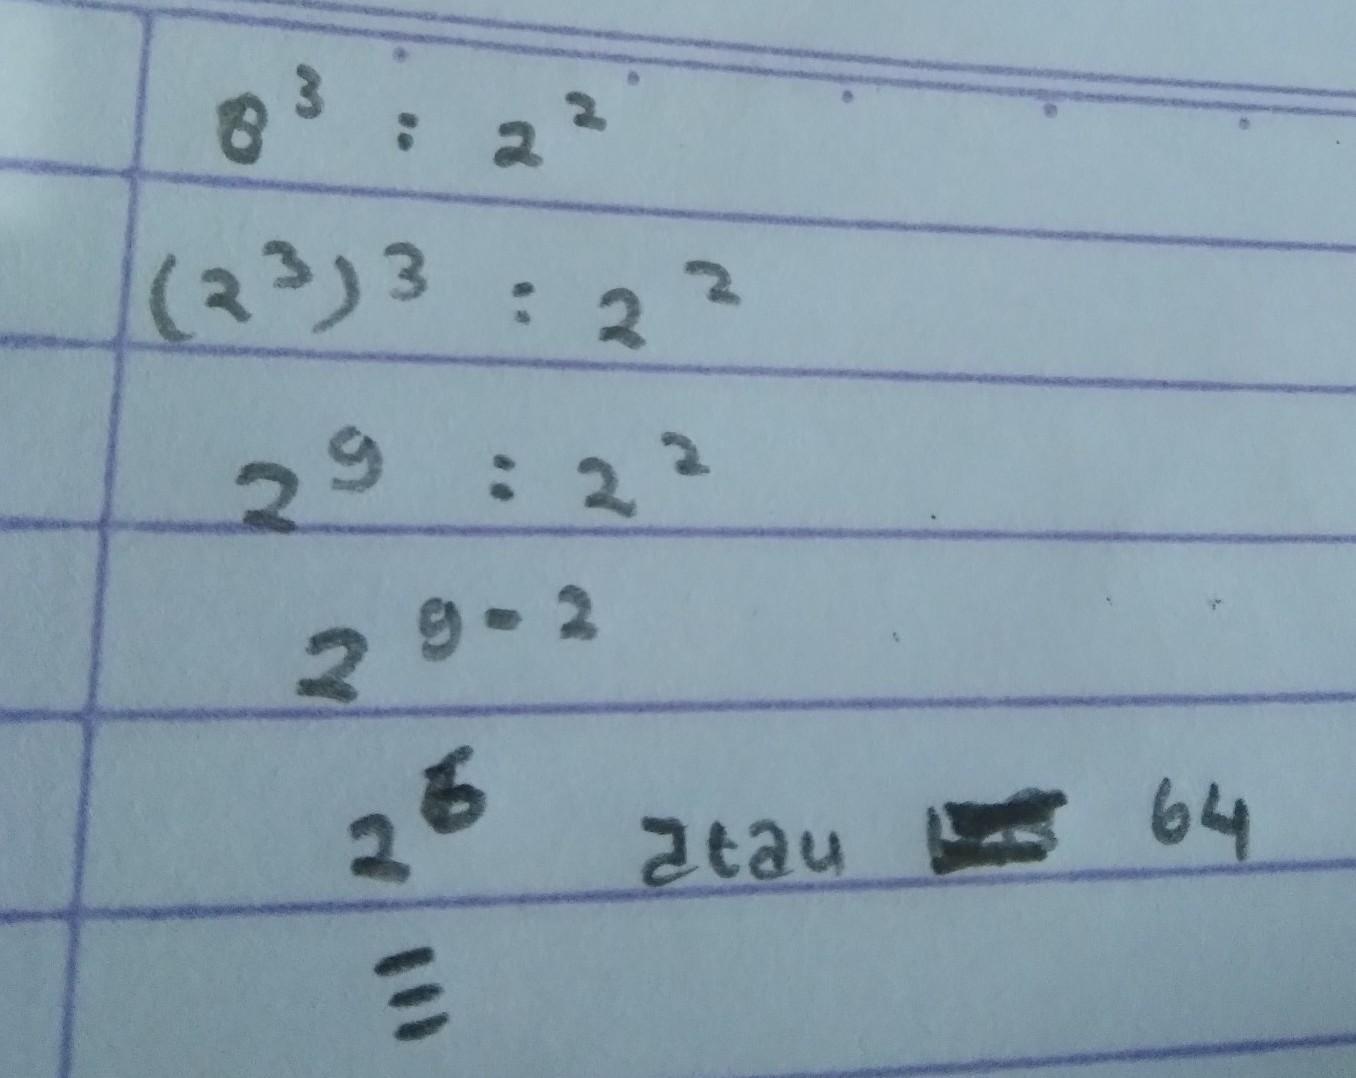 8³ : 2²
(2³)³ : 2²
2⁹ : 2²
2⁹⁻²
2⁶ atau 64